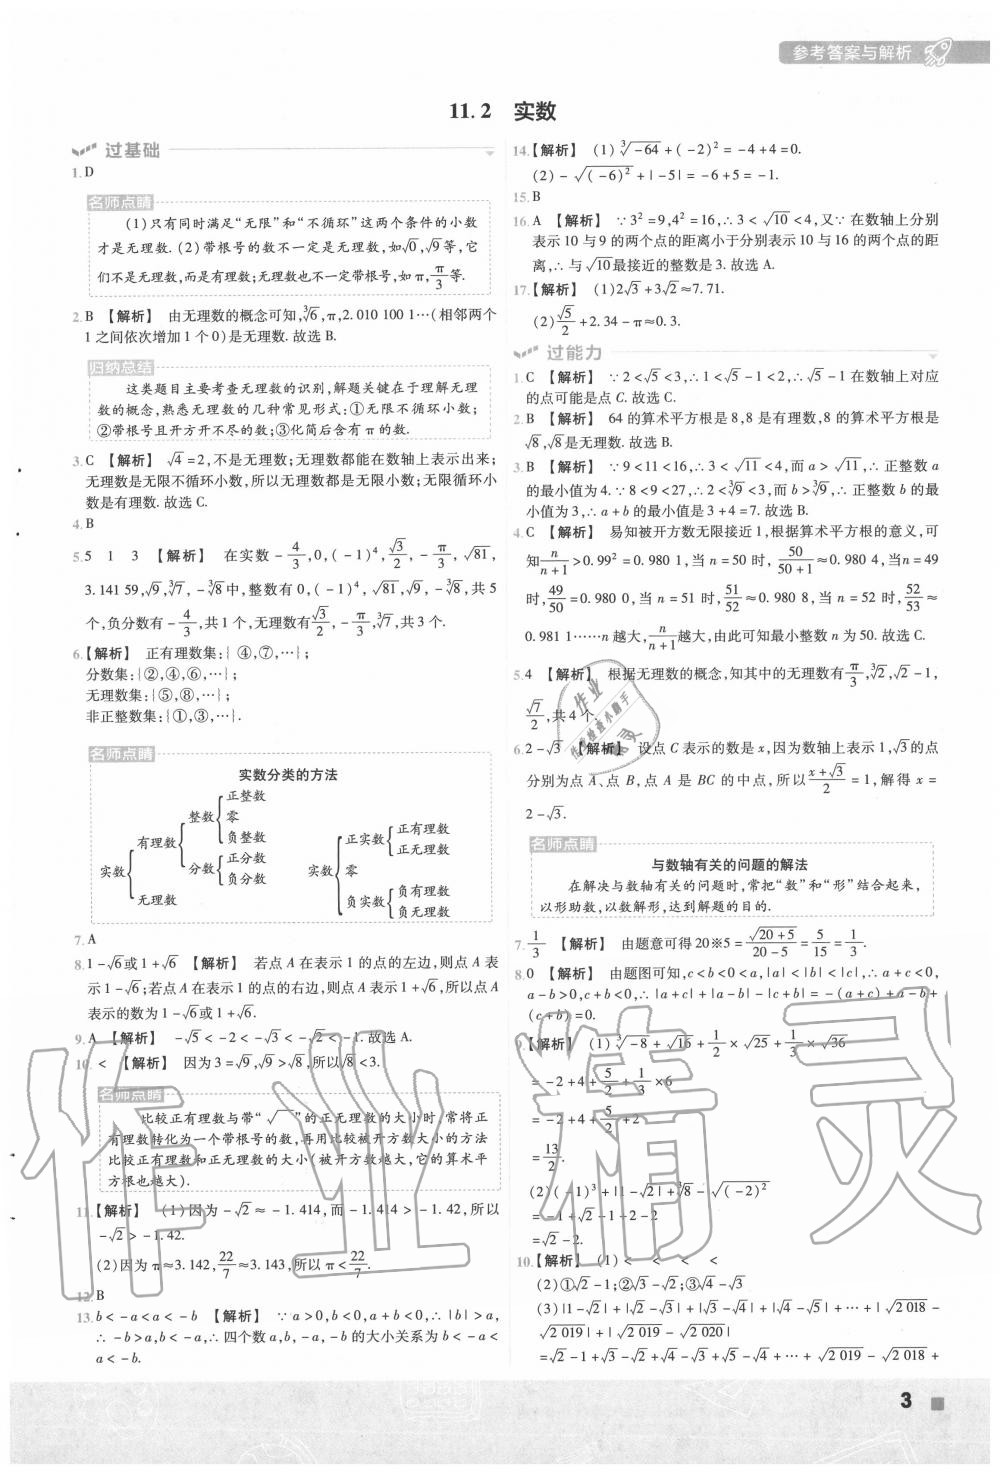 参考答案与解析
11.2 实数
过基础
1.D
名师点睛
(1)只有同时满足“无限”和“不循环”这两个条件的小数
才是无理数.(2)带根号的数不一定是无理数,如√0,√9等,它
们不是无理数,而是有理数;无理数也不一定带根号,如π,π/3等.
2.B 【解析】 由无理数的概念可知,∛6,π,2.010 100 1…(相邻两个
1之间依次增加1个0)是无理数.故选B.
归纳总结
这类题目主要考查无理数的识别,解题关键在于理解无理
数的概念,熟悉无理数的几种常见形式:①无限不循环小数;
②带根号且开方开不尽的数;③化简后含有π的数.
3.C 【解析】 √4=2,不是无理数;无理数都能在数轴上表示出来;
无理数是无限不循环小数,所以无理数都是无限小数;无限循环小
数是有理数.故选C.
4.B
5.5 1 3 【解析】 在实数-4/3,0,(-1)⁴,∛3/2,-π/3,√81,
3.141 59,√9,∛7,-∛8中,整数有0,(-1)⁴,√81,√9,-∛8,共5
个,负分数有-4/3,共1个,无理数有∛3/2,-π/3,∛7,共3个.
6.【解析】 正有理数集:{④,⑦,…};
分数集:{②,④,⑥,…};
无理数集:{⑤,⑧,…};
非正整数集:{①,③,…}.
名师点睛
实数分类的方法
实数{有理数{整数{正整数 零 负整数
分数{正分数 负分数
无理数
实数{正实数{正有理数 正无理数
零
负实数{负有理数 负无理数
7.A
8.1-√6或1+√6 【解析】 若点A在表示1的点的左边,则点A表
示1-√6;若点A在表示1的点的右边,则点A表示1+√6,所以点A
表示的数为1-√6或1+√6.
9.A 【解析】 -√5<-2<-√3<-√2<-1.故选A.
10.< 【解析】 因为3=√9,√9>√8,所以√8<3.
名师点睛
比较正有理数与带“√”的正无理数的大小时,常将正
有理数转化为一个带根号的数,再用比较被开方数大小的方法
比较正有理数和正无理数的大小(被开方数越大,它的算术平
方根也越大).
11.【解析】 (1)因为-√2≈-1.414,而-1.414>-1.42,所以
-√2>-1.42.
(2)因为π≈3.142,22/7≈3.143,所以π<22/7.
12.B
13.b<-a<a<-b 【解析】 ∵a>0,b<0,a+b<0,∴|b|>a,
∴-b>a,b<-a,∴四个数a,b,-a,-b的大小关系为b<-a<
a<-b.
14.【解析】 (1)∛-64+(-2)²=-4+4=0.
(2)-√(-6)²+|-5|=-6+5=-1.
15.B
16.A 【解析】 ∵3²=9,4²=16,∴3<√10<4,又∵在数轴上分别
表示10与9的两个点的距离小于分别表示10与16的两个点的距
离,∴与√10最接近的整数是3.故选A.
17.【解析】 (1)2√3+3√2≈7.71.
(2)√5/2+2.34-π≈0.3.
过能力
1.C 【解析】 ∵2<√5<3,∴1<√5-1<2,∴√5-1在数轴上对应
的点可能是点C.故选C.
2.B 【解析】 64的算术平方根是8,8是有理数,8的算术平方根是
√8,√8是无理数.故选B.
3.B 【解析】 ∵9<11<16,∴3<√11<4,而a>√11,∴正整数a
的最小值为4.∵8<9<27,∴2<∛9<3,而b>∛9,∴正整数b的最
小值为3,∴a+b的最小值是3+4=7.故选B.
4.C 【解析】 易知被开方数无限接近1,根据算术平方根的意义,可
知n/(n+1)>0.99²=0.980 1,当n=50时,50/(50+1)≈0.980 4,当n=49
时,49/50=0.980 0,当n=51时,51/52≈0.980 8,当n=52时,52/53≈
0.981 1……n越大,n/(n+1)越大,由此可知最小整数n为50.故选C.
5.4 【解析】 根据无理数的概念,知其中的无理数有π/3,∛2,√2-1,
√7/2,共4个.
6.2-√3 【解析】 设点C表示的数是x,因为数轴上表示1,√3的点
分别为点A、点B,点A是BC的中点,所以(x+√3)/2=1,解得x=
2-√3.
名师点睛
与数轴有关的问题的解法
在解决与数轴有关的问题时,常把“数”和“形”结合起来,
以形助数,以数解形,达到解题的目的.
7.1/3 【解析】 由题意可得20※5=√(20+5)/(20-5)=5/15=1/3.
8.0 【解析】 由题图可知,c<b<0<a,|a|<|b|<|c|,∴a+c<0,
a-b>0,c+b<0,∴|a+c|+|a-b|-|c+b|=-(a+c)+a-b+
(c+b)=0.
9.【解析】 (1)∛-8+√16+1/2×√25+1/3×√36
=-2+4+5/2+1/3×6
=-2+4+5/2+2
=13/2.
(2)(-1)³+|1-√2|+∛8-√(-2)²
=-1+√2-1+2-2
=√2-2.
10.【解析】 (1)< < < <
(2)①√2-1;②√3-√2;③√4-√3
(3)|1-√2|+|√2-√3|+|√3-√4|+|√4-√5|+…+|√2 018-
√2 019|+|√2 019-√2 020|
=√2-1+√3-√2+√4-√3+√5-√4+…+√2 019-√2 018+
3
作业精灵